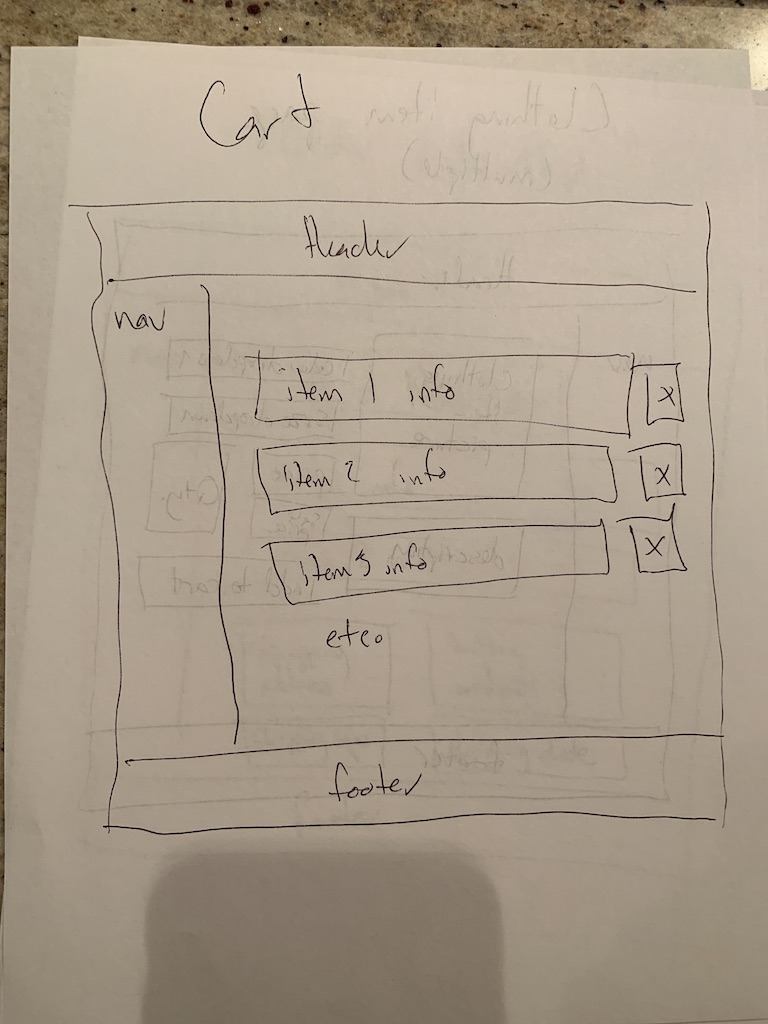 Cart
Header
nav
item 1 info X
item 2 info X
item 3 info X
etc.
footer